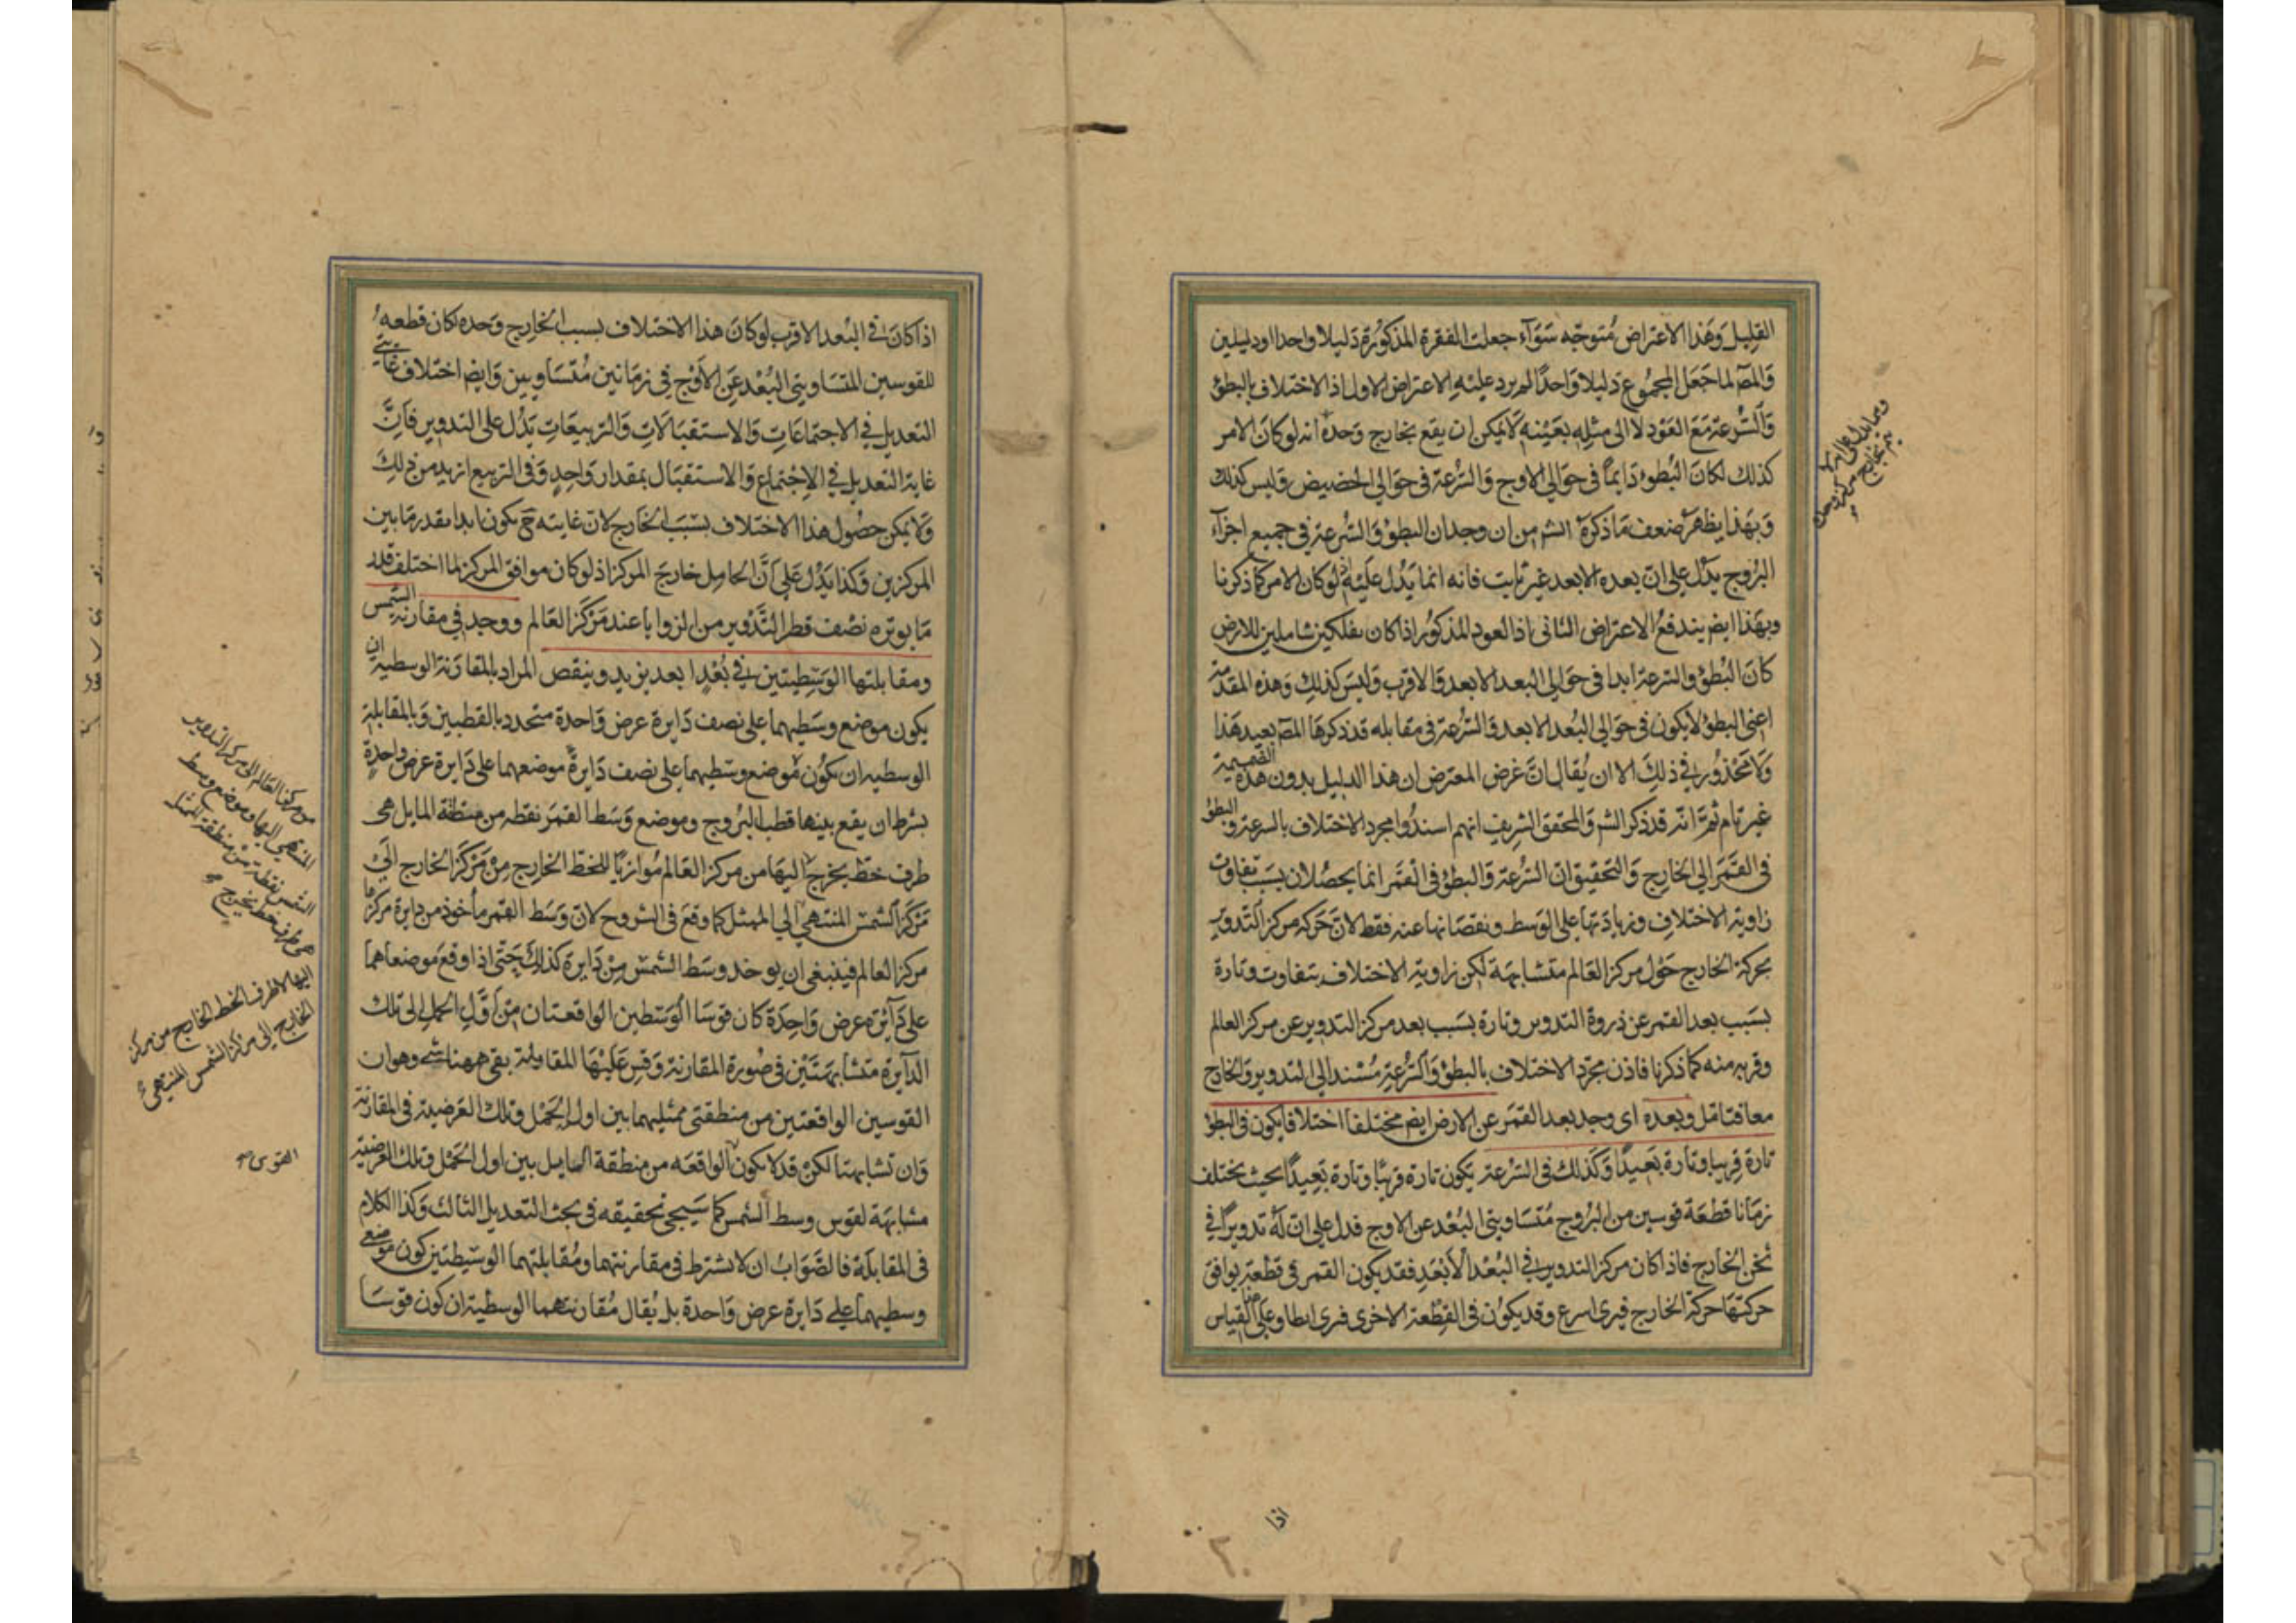 القليل وَهَذا الاعتراض مُتوجّه سَوَآء جعلت الفقرة المذكوُرة دَليلا واحدا اودليلين
وَالمصَ لما جَعَل المجموُع دَليلا وَاحداً لم يرد عليْهِ الاعتراض الاول اذ الاختلاف بالبطؤ
وَالسُّرعة مَعَ العَود لا الى مثلِه بعَيْنه لايمكن ان يقع بخارج وَحدهُ انه لو كانَ الامر
كذلك لكانَ البُطوء دَايماً فى حوَالى الاوج وَالسُّرعة فى حوَالى الحضيض وَليس كذلك
وَبهَذا يظهَر ضعف مَا ذكرهَ الشم من ان وجدان البطوْ وَالسُّرعة فى جميع اجزآء
البرُوج يدُل على ان بعده الابعد غير ثابت فانه انما يَدُل عَليْه لو كان الامر كما ذكرنا
وبهَذا ايضَ يندفعُ الاعتراض الثانى اذ العود المذكوُر اذا كان بفلكين شاملين للارض
كانَ البُطؤ والسرعة ابدا فى حوَالى البعد الابعد وَالاقرب وَليسَ كذلك وَهذه المقدّمة
اعنى البطؤ لايكون فى حوَالى البُعد الابعد وَالسُّرعة فى مقابله قد ذكرهَا المصَ بعيد هَذا
وَلا مَحْذوُر فى ذلِكَ الا ان يُقال انَّ غرض المعترض ان هذا الدليل بدون هذه الضميمة
غير تام ثمَّ انّه قد ذكر الشم وَالمحقق الشريف انهم اسندُوا مجرد الاختلاف بالسرعة والبطؤ
فى القمَر الى الخارج وَالتحقيق ان السُّرعة وَالبطؤ فى القمَر انما يحصُلان بسَبَب تفاوت
زاوية الاختلاف وزيادَتها على الوَسط ونقصَانها عنه فقط لانَّ حَركة مركز التَّدوير
بحركة الخارج حَوْل مركز العَالم متشابهَة لكن زاوية الاختلاف يتفاوت وتارة
بسَبب بعد القمَر عن ذروة التدوير وتارة بسَبب بعد مركز التدوير عن مركز العالم
وقربه منه كما ذكرنا فاذن مجرّد الاختلاف بالبطوْ وَالسُّرعة مُسْتند الى التدوير وَالخارج
معا فتامل وبعده اى وجد بعد القمَر عن الارض ايضَ مختلفا اختلافا يكون فى البطؤ
تارة قريبا وتارة بَعيدًا وَكذلك فى السُّرعة يَكون تارة قريبًا وتارة بَعيدًا بحيث يختلف
زمَانا قطعَة قوسين من البرُوج مُتسَاويتى البُعْد عن الاوج فدل على انّ لَهُ تدويرًا فى
ثخن الخارج فاذا كان مركز التدوير فى البُعْد الْابْعَدِ فقد يكون القمر فى قطعَة يوافق
حركتهَا حركة الخارج فيرى اسرع وقد يكوُن فى القِطْعة الاخرى فيرى ابطا وعَلى هذا القياس
اذا
اذا كانَ فى البُعد الاقرب لو كانَ هذا الاختلاف بسبب الخارج وَحده لكان قطعه
للقوسين المتسَاويتى البُعْد عَن الاوْج فى زمَانين مُتسَاويين وَايضَ اختلاف غايتى
التعديل فى الاجتماعَاتِ وَالاستقبَالَاتِ وَالتربيعَاتِ يَدُل على التدوير فانَّ
غاية التعديل فى الاِجْتماع وَالاستقبَال بمقدار وَاحِدٍ وَفى التربيع ازيد من ذلِكَ
وَلا يمكن حصُول هذا الاختلاف بسَبَب الخارج لان غايته ح يكون ابدا بقدر مَا بين
المركزين وَكذا يَدُل عَلى اَنَّ الحامِل خارجَ المركز اذ لو كان موافق المركز لما اختلف قدر
مَا يوتره نصْف قطر التَّدوير من الزوايا عند مَرْكز العَالم ووجد فى مقارنة الشمس
ومقابلتها الوَسَطيتين فى بُعْدٍ ابعد يزيد وينقص المراد بالمقارَنة الوسطية ان
يكون موضع وسَطيهما على نصف دَايرة عرض وَاحدة متحدد بالقطبين وَبالمقابلة
الوسطيه ان يكوُن مَوضع وسَطيهما على نصف دَايرة موضعهما على دَايرة عرض واحدةٍ
بشرط ان يقع بينها قطب البُروج وموضع وَسَط القمَر نقطه من منطقة المايل هى
طرف خطّ يخرج اليهَا من مركز العَالم مُوازيًا للخط الخارج مِنْ مَرْكز الخارج الىَ
مَرْكز الشمْس المنتهى الى الممثل كما وقعَ فى الشروح لانّ وَسَط القمَر مأخوذ من دايرة مركزها
مركز العَالم فينبغى ان يوخد وسَط الشمْس مِنْ دَايرة كذلك حَتّى اذا وقع مَوضعَاهما
على دَآئرة عرض وَاحِدَة كان قوسَا الْوسَطين الواقعتان مِنْ اَوَّل الحمل الى تلك
الدَّآيرة متشابهتَيْن فى صُورة المقارنة وَقس عَليْها المقابلة بقى ههنا شى وهو ان
القوسين الواقعتين من منطقتى ممثليهما بين اول الحَمْل وتلك العَرضية فى المقارنة
وَان تشابهتا لكنْ قد لا يكون الواقعَه من منطقة المايل بين اول الحَمْل وتلك العَرضية
مشابهَة لقوس وسط الشمس كما سَيجى تحقيقه فى بحث التعديل الثالث وَكذا الكلام
فى المقابلَة فالصَّوَابُ ان لا يشترط فى مقارنتهما ومُقابلتهما الوسَطيتين كون موضعى
وسطيهما على دَايرة عرض وَاحدة بل يُقال مُقارنتهما الوسطية ان كون قوسَا
من مركز العَالم الى مركز التدوير
المنتهى اليها وموضع وسط
الشمس نقطة من منطقة الممثل
هى طرف خط يخرج
اليها لا طرف الخط الخارج من مركز
الخارج الى مركز الشمس المنتهى
القوس